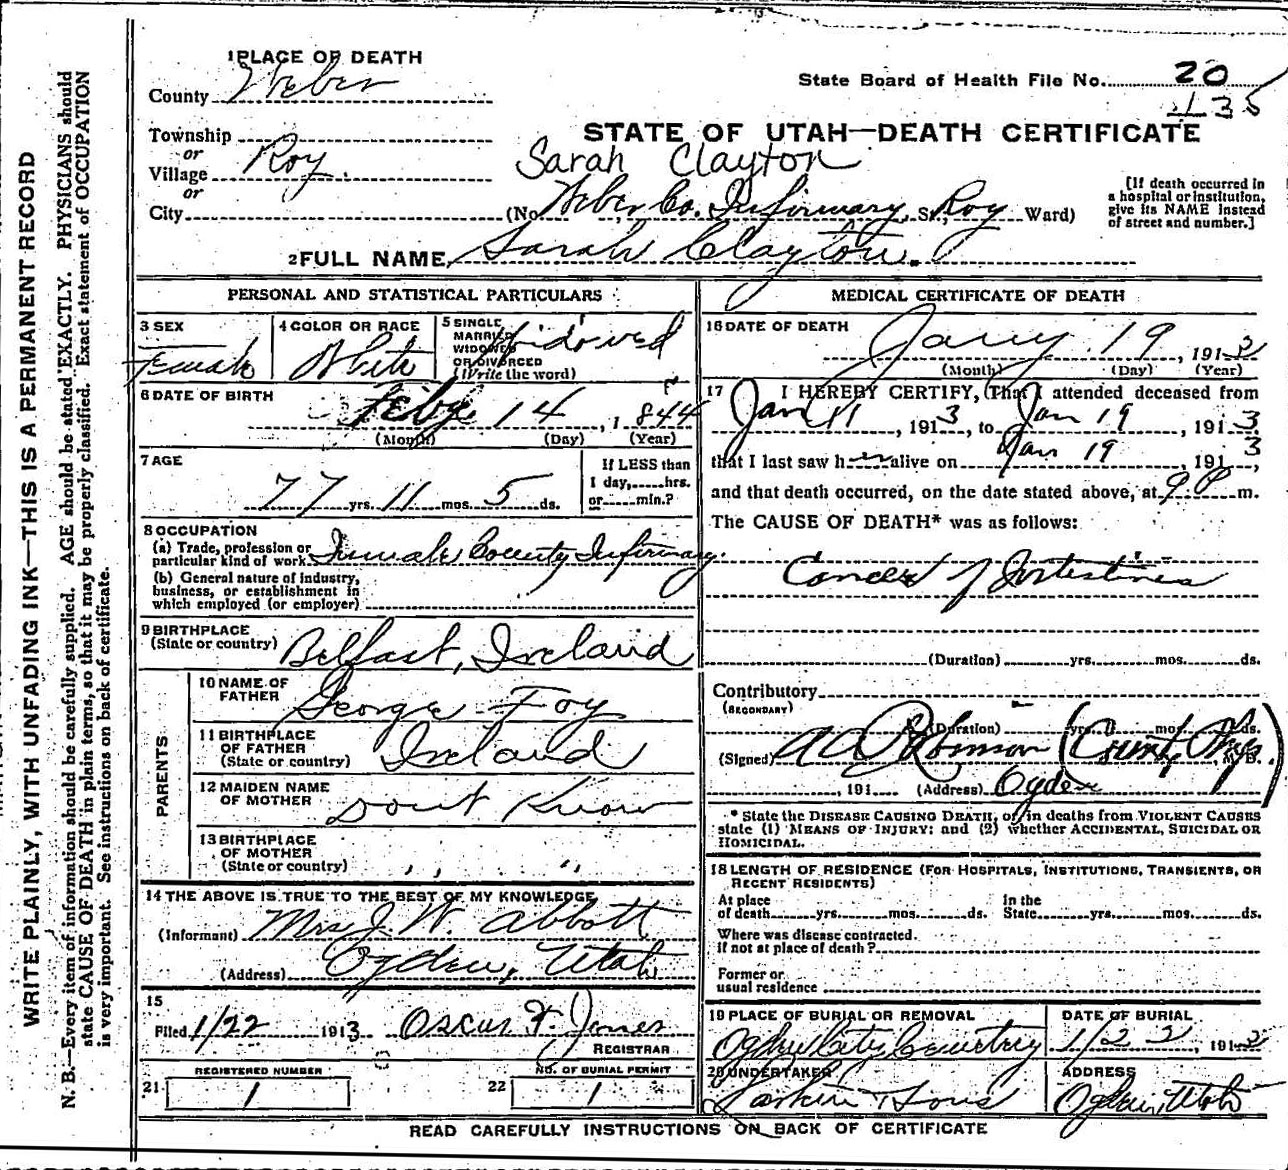 WRITE PLAINLY, WITH UNFADING INK—THIS IS A PERMANENT RECORD
N. B.—Every item of information should be carefully supplied. AGE should be stated EXACTLY. PHYSICIANS should
state CAUSE OF DEATH in plain terms, so that it may be properly classified. Exact statement of OCCUPATION
is very important. See instructions on back of certificate.
1 PLACE OF DEATH
County Weber
State Board of Health File No. 20
135
Township
or
Village Roy.
or
City
STATE OF UTAH—DEATH CERTIFICATE
Sarah Clayton
(No. Weber Co. Infirmary, St., Roy Ward)
[If death occurred in
a hospital or institution,
give its NAME instead
of street and number.]
2 FULL NAME Sarah Clayton.
PERSONAL AND STATISTICAL PARTICULARS
3 SEX
Female
4 COLOR OR RACE
White
5 SINGLE
MARRIED
WIDOWED
OR DIVORCED
(Write the word)
Widowed
6 DATE OF BIRTH
Feby 14, 1844
(Month) (Day) (Year)
7 AGE
77 yrs. 11 mos. 5 ds.
If LESS than
1 day, hrs.
or min.?
8 OCCUPATION
(a) Trade, profession or
particular kind of work Inmate County Infirmary.
(b) General nature of industry,
business, or establishment in
which employed (or employer)
9 BIRTHPLACE
(State or country) Belfast, Ireland
PARENTS
10 NAME OF
FATHER George Foy
11 BIRTHPLACE
OF FATHER
(State or country) Ireland
12 MAIDEN NAME
OF MOTHER dont Know
13 BIRTHPLACE
OF MOTHER
(State or country) " "
14 THE ABOVE IS TRUE TO THE BEST OF MY KNOWLEDGE
(Informant) Mrs J. W. Abbott
(Address) Ogden, Utah
15
Filed 1/22 1913 Oscar F. Jones
REGISTRAR
21 REGISTERED NUMBER
1
22 NO. OF BURIAL PERMIT
1
MEDICAL CERTIFICATE OF DEATH
16 DATE OF DEATH
Jany. 19, 1913
(Month) (Day) (Year)
17 I HEREBY CERTIFY, (That I attended deceased from
Jan 11, 1913, to Jan 19, 1913
that I last saw her alive on Jan 19, 1913,
and that death occurred, on the date stated above, at 9 P m.
The CAUSE OF DEATH* was as follows:
Cancer of Intestines
(Duration) yrs. mos. ds.
Contributory
(SECONDARY)
(Duration) yrs. mos. ds.
(Signed) Robinson (County Phys) M. D.
, 191 (Address) Ogden
* State the DISEASE CAUSING DEATH, or in deaths from VIOLENT CAUSES
state (1) MEANS OF INJURY: and (2) whether ACCIDENTAL, SUICIDAL OR
HOMICIDAL.
18 LENGTH OF RESIDENCE (FOR HOSPITALS, INSTITUTIONS, TRANSIENTS, OR
RECENT RESIDENTS)
At place
of death yrs. mos. ds.
In the
State yrs. mos. ds.
Where was disease contracted.
if not at place of death?
Former or
usual residence
19 PLACE OF BURIAL OR REMOVAL
Ogden City Cemetery
DATE OF BURIAL
1/22, 1913
20 UNDERTAKER
Larkin & Sons
ADDRESS
Ogden, Utah
READ CAREFULLY INSTRUCTIONS ON BACK OF CERTIFICATE